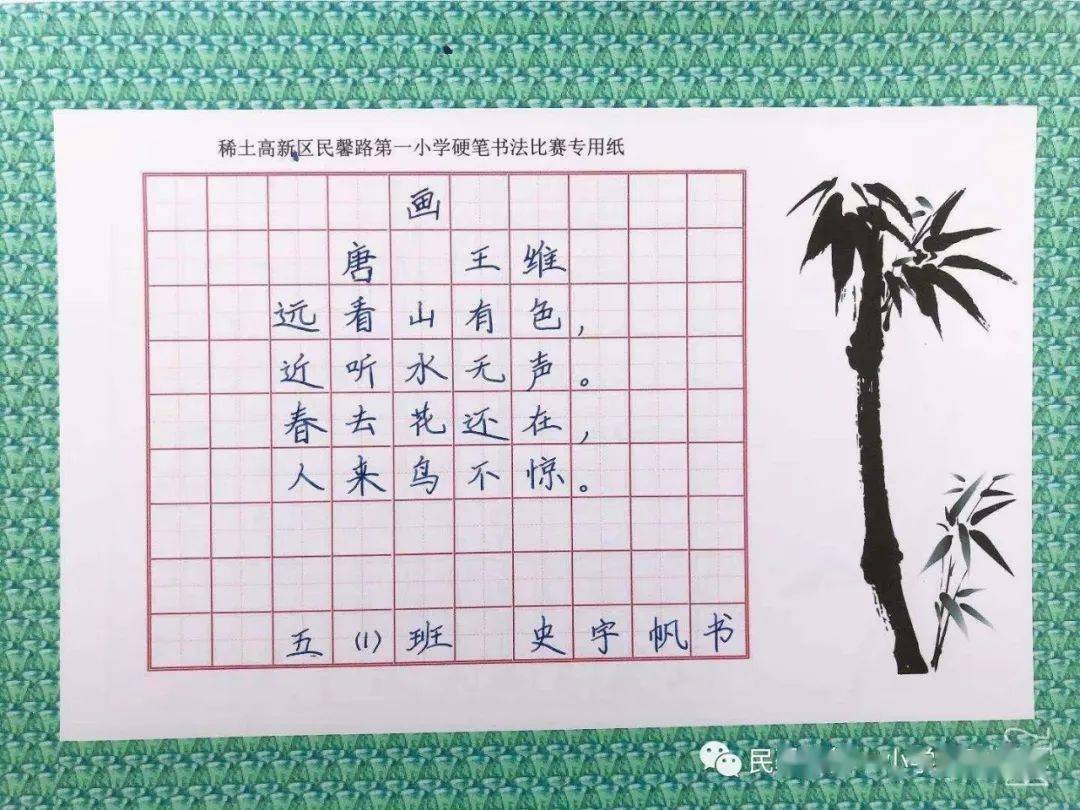 稀土高新区民馨路第一小学硬笔书法比赛专用纸
画
唐 王维
远看山有色，
近听水无声。
春去花还在，
人来鸟不惊。
五(1)班 史宇帆书
民
小学